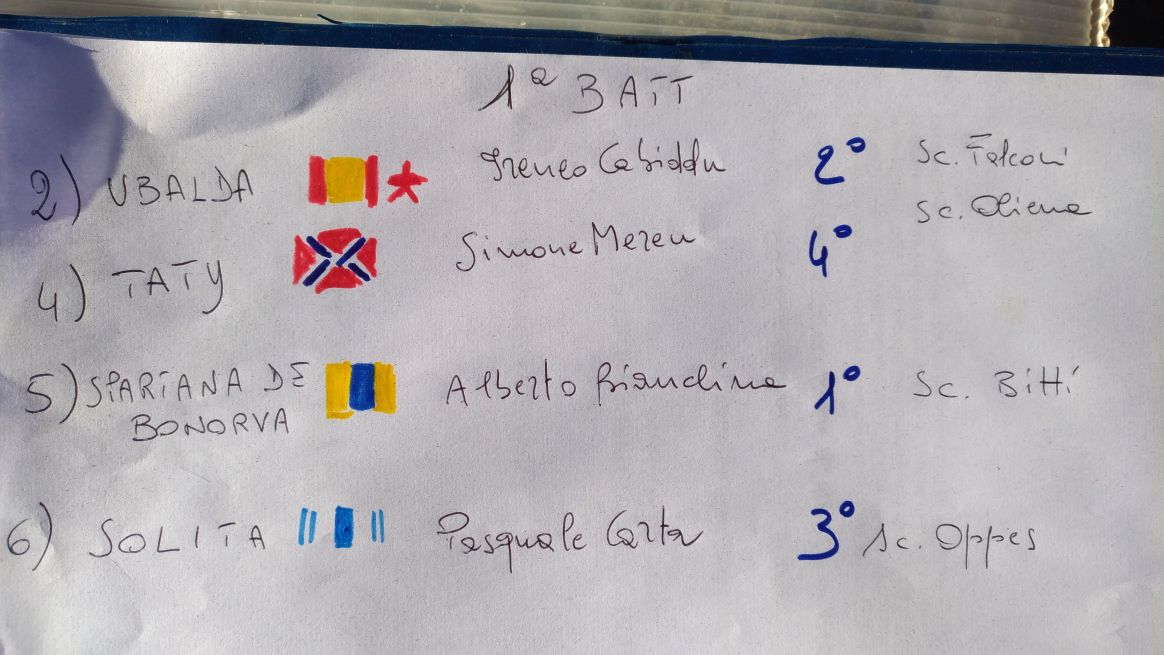 1ª BATT
2) UBALDA Ireneo Cabiddu 2° Sc. Falconi
Sc. Oliena
4) TATY Simone Mereu 4°
5) SPARTANA DE Alberto Bianchina 1° Sc. Bitti
BONORVA
6) SOLITA Pasquale Carta 3° Sc. Oppes